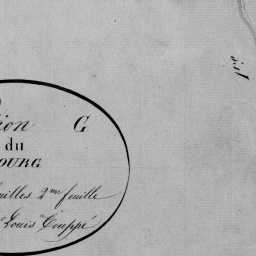 ion G
du
OURG
uilles 2me feuille
Louis Couppé